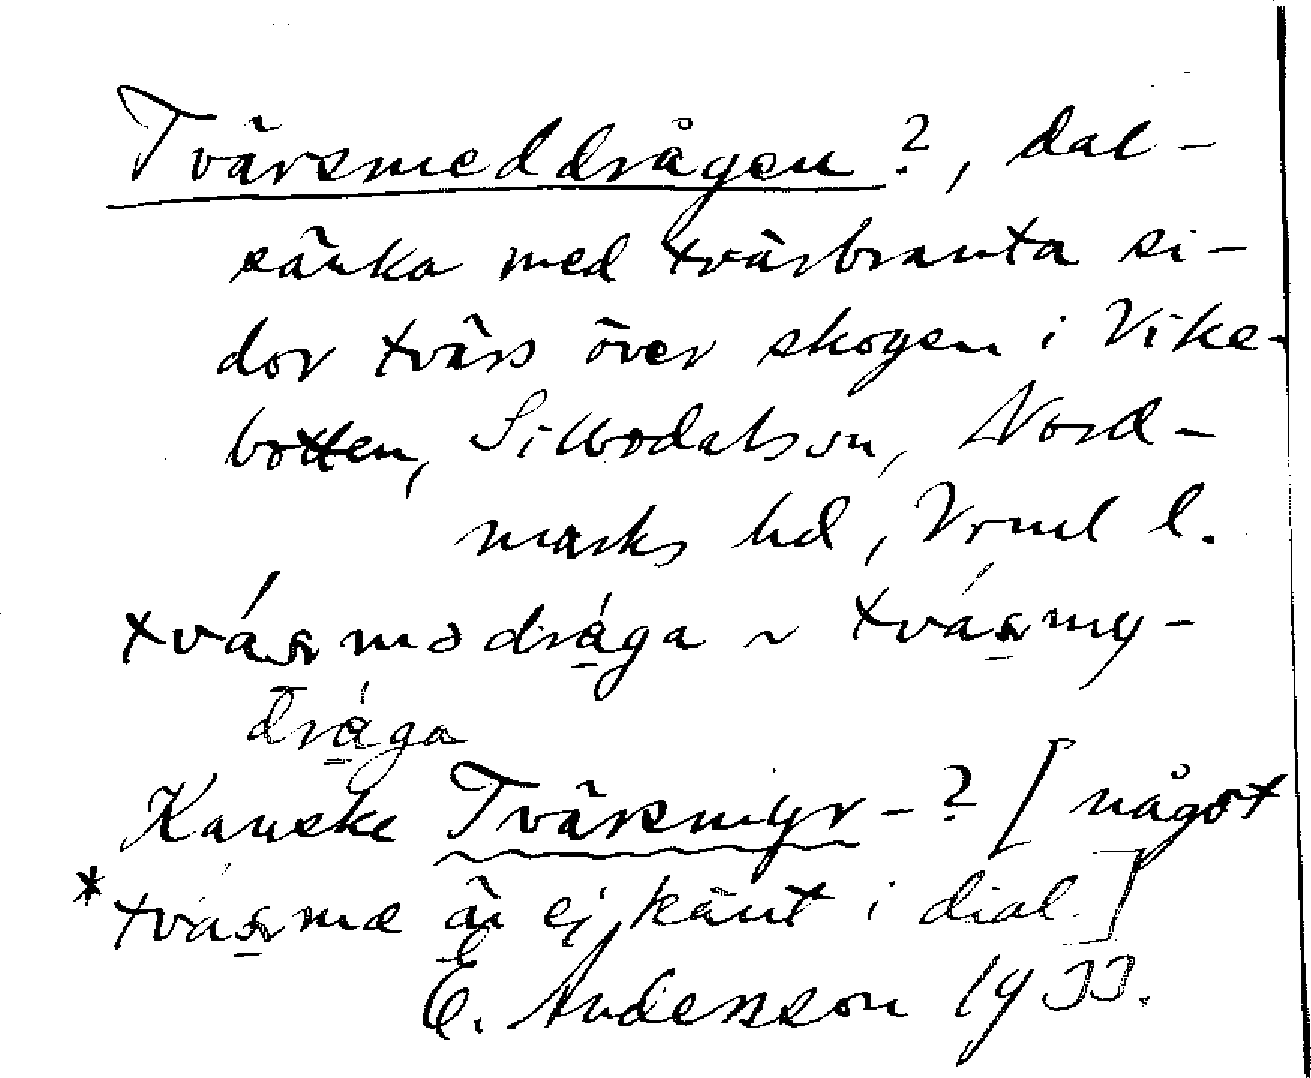 Tvärsmeddrågen?, dal-
sänka med tvärbranta si-
dor tvärs över skogen i Vike-
botten, Sillbodalssn, Nord-
marks hd, Vrml l.
tvásmədrága ~ tvásmy-
drága
Kanske Tvärsmyr-? [något
*tvasmæ är ej känt i dial.]
E. Andersson 1933.